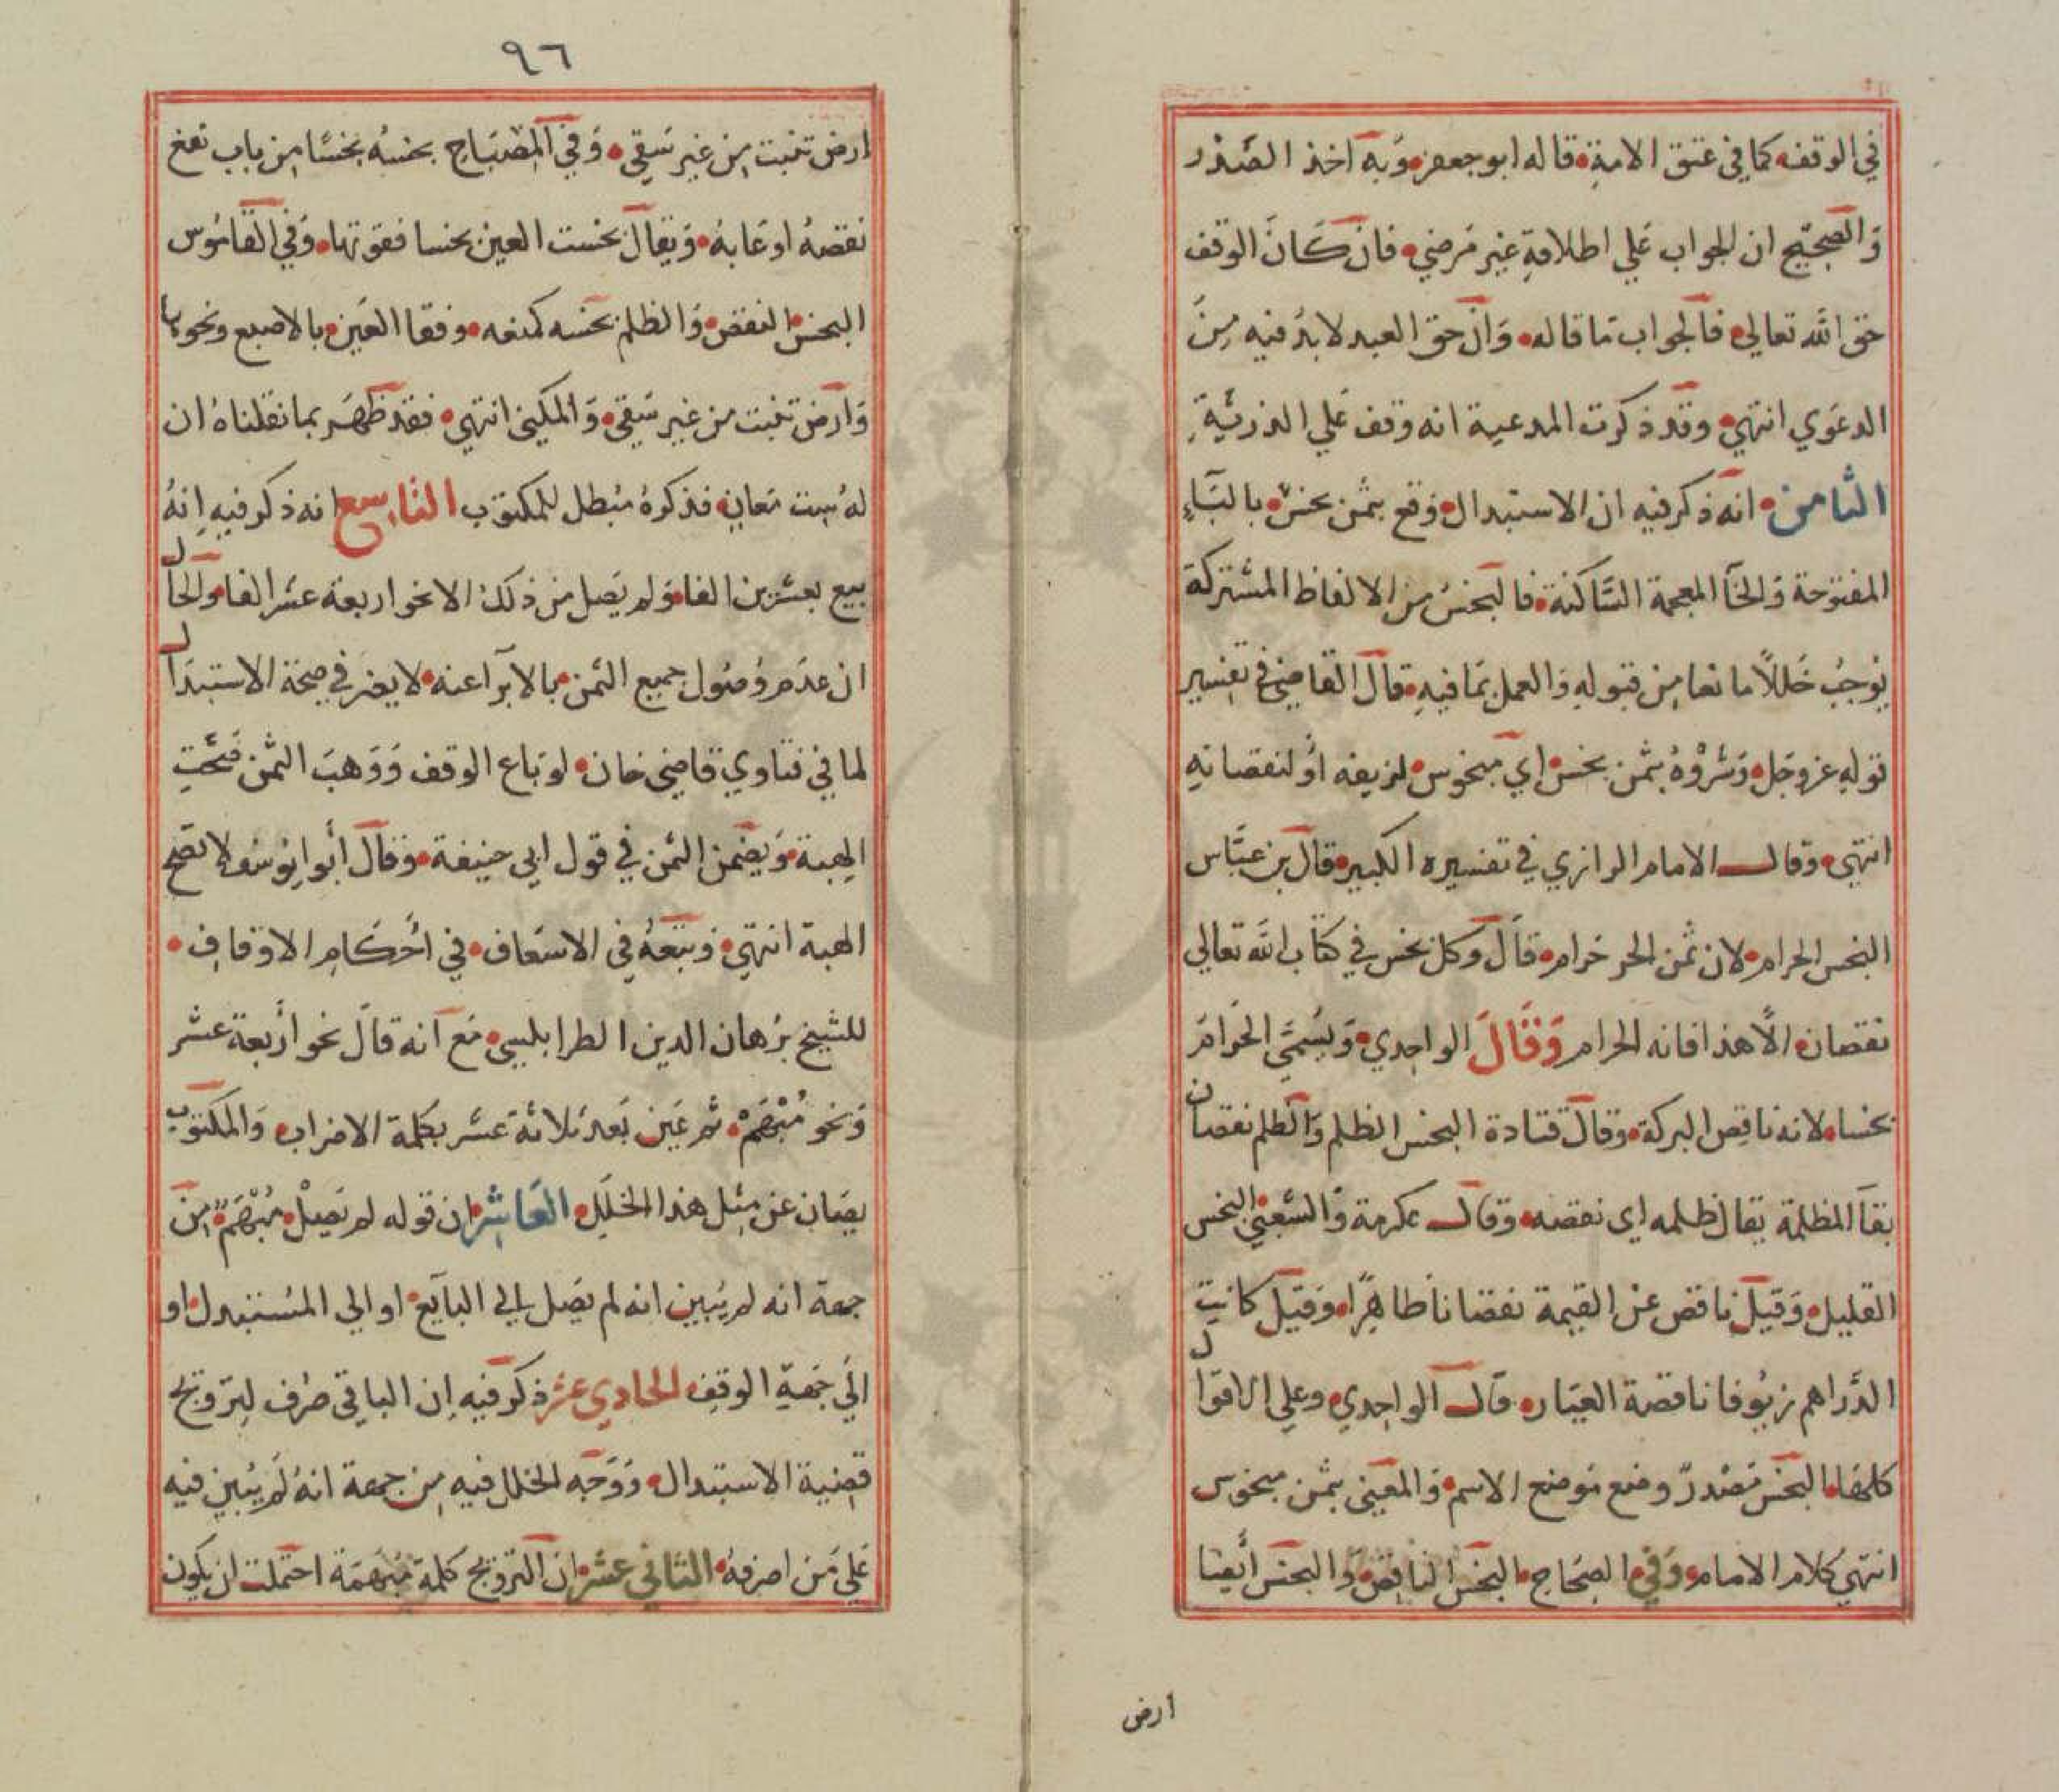 في الوقف كما في عتق الامة قاله ابو جعفر وبه اخذ الصدر
والصحيح ان الجواب علي اطلاقه غير مرضي فان كان الوقف
حق الله تعالي فالجواب ما قاله وان حق العبد لا بد فيه من
الدعوي انتهي وقد ذكرت المدعية انه وقف علي الذرية
الثامن انه ذكر فيه ان الاستبدال وقع بثمن بخس بالباء
المفتوحة والخآ المعجمة الساكنة فالبخس من الالفاظ المشتركة
يوجب خللاً مانعا من قبوله والعمل بما فيه قال القاضي في تفسير
قوله عز وجل وشروه بثمن بخس اي مبخوس لزيفه او لنقصانه
انتهي وقال الامام الرازي في تفسيره الكبير قال بن عباس
البخس الحرام لان ثمن الحر حرام قال وكل بخس في كتاب الله تعالي
نقصان الا هذا فانه الحرام وقال الواحدي ويسمي الحرام
بخسا لانه ناقص البركة وقال قتادة البخس الظلم والظلم نقصان
يقال المظلمة يقال ظلمه اي نقصه وقال عكرمة والشعبي البخس
القليل وقيل ناقص عن القيمة نقصانا ظاهرا وقيل كانت
الدراهم زيوفا ناقصة العيار قال الواحدي وعلي الاقوال
كلها البخس مصدر وضع موضع الاسم والمعني بثمن مبخوس
انتهي كلام الامام وفي الصحاح البخس الناقص والبخس أيضا
ارض
٩٦
ارض تنبت من غير سقي وفي المصباح بخسه بخسًا من باب نفع
نقصه او عابه ويقال بخست العين بخسا فقوتها وفي القاموس
البخس النقص والظلم بخسه كمنعه وفقا العين بالاصبع ونحوها
وارض تنبت من غير سقي والمكس انتهي فقد ظهر بما نقلناه ان
له ست معان فذكره مبطل للمكتوب التاسع انه ذكر فيه انه
بيع بعشرين الفا ولم يصل من ذلك الا نحو اربعة عشر الفا والحال
ان عدم وصول جميع الثمن بالابرآ عنه لا يضر في صحة الاستبدال
لما في فتاوي قاضي خان لو باع الوقف ووهب الثمن صحت
الهبة ويضمن الثمن في قول ابي حنيفة وقال أبو يوسف لا تصح
الهبة انتهي وتبعه في الاسعاف في احكام الاوقاف
للشيخ برهان الدين الطرابلسي مع انه قال نحو أربعة عشر
ونحو مبهم ثم عين بعد ثلاثة عشر بكلمة الاضراب والمكتوب
يصان عن مثل هذا الخلل العاشر ان قوله لم تصل مبهم من
جهة انه لم يبين انه لم يصل الي البآيع او الي المستبدل او
الي جهة الوقف الحادي عشر ذكر فيه ان الباقي صرف لترويج
قضية الاستبدال ووجه الخلل فيه من جهة انه لم يبين فيه
علي من اصرفه الثاني عشر ان الترويج كلمة مبهمة احتملت ان يكون